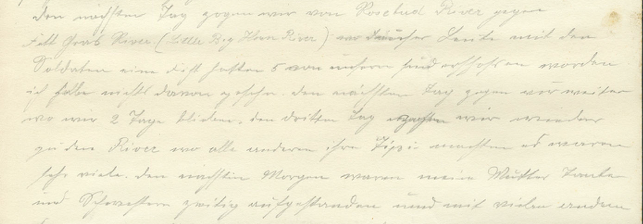 den nachsten Tag zogen wir von Rosebud River gegen
Grass River (Little Big Horn River) wo Leute mit den
Soldaten eine Fight hatten 5 von unsern sind erschossen worden
ich habe nichts davon gesehn. den nachsten Tag zogen wir weiter
wo wir 2 Tage blieben, den dritten Tag wir wieder
zu den River wo alle andern ihre Tippi machten es waren
sehr viele. den nachsten Morgen waren meine Mutter Tante
und Schwestern zeitig aufgestanden und mit vielen andern